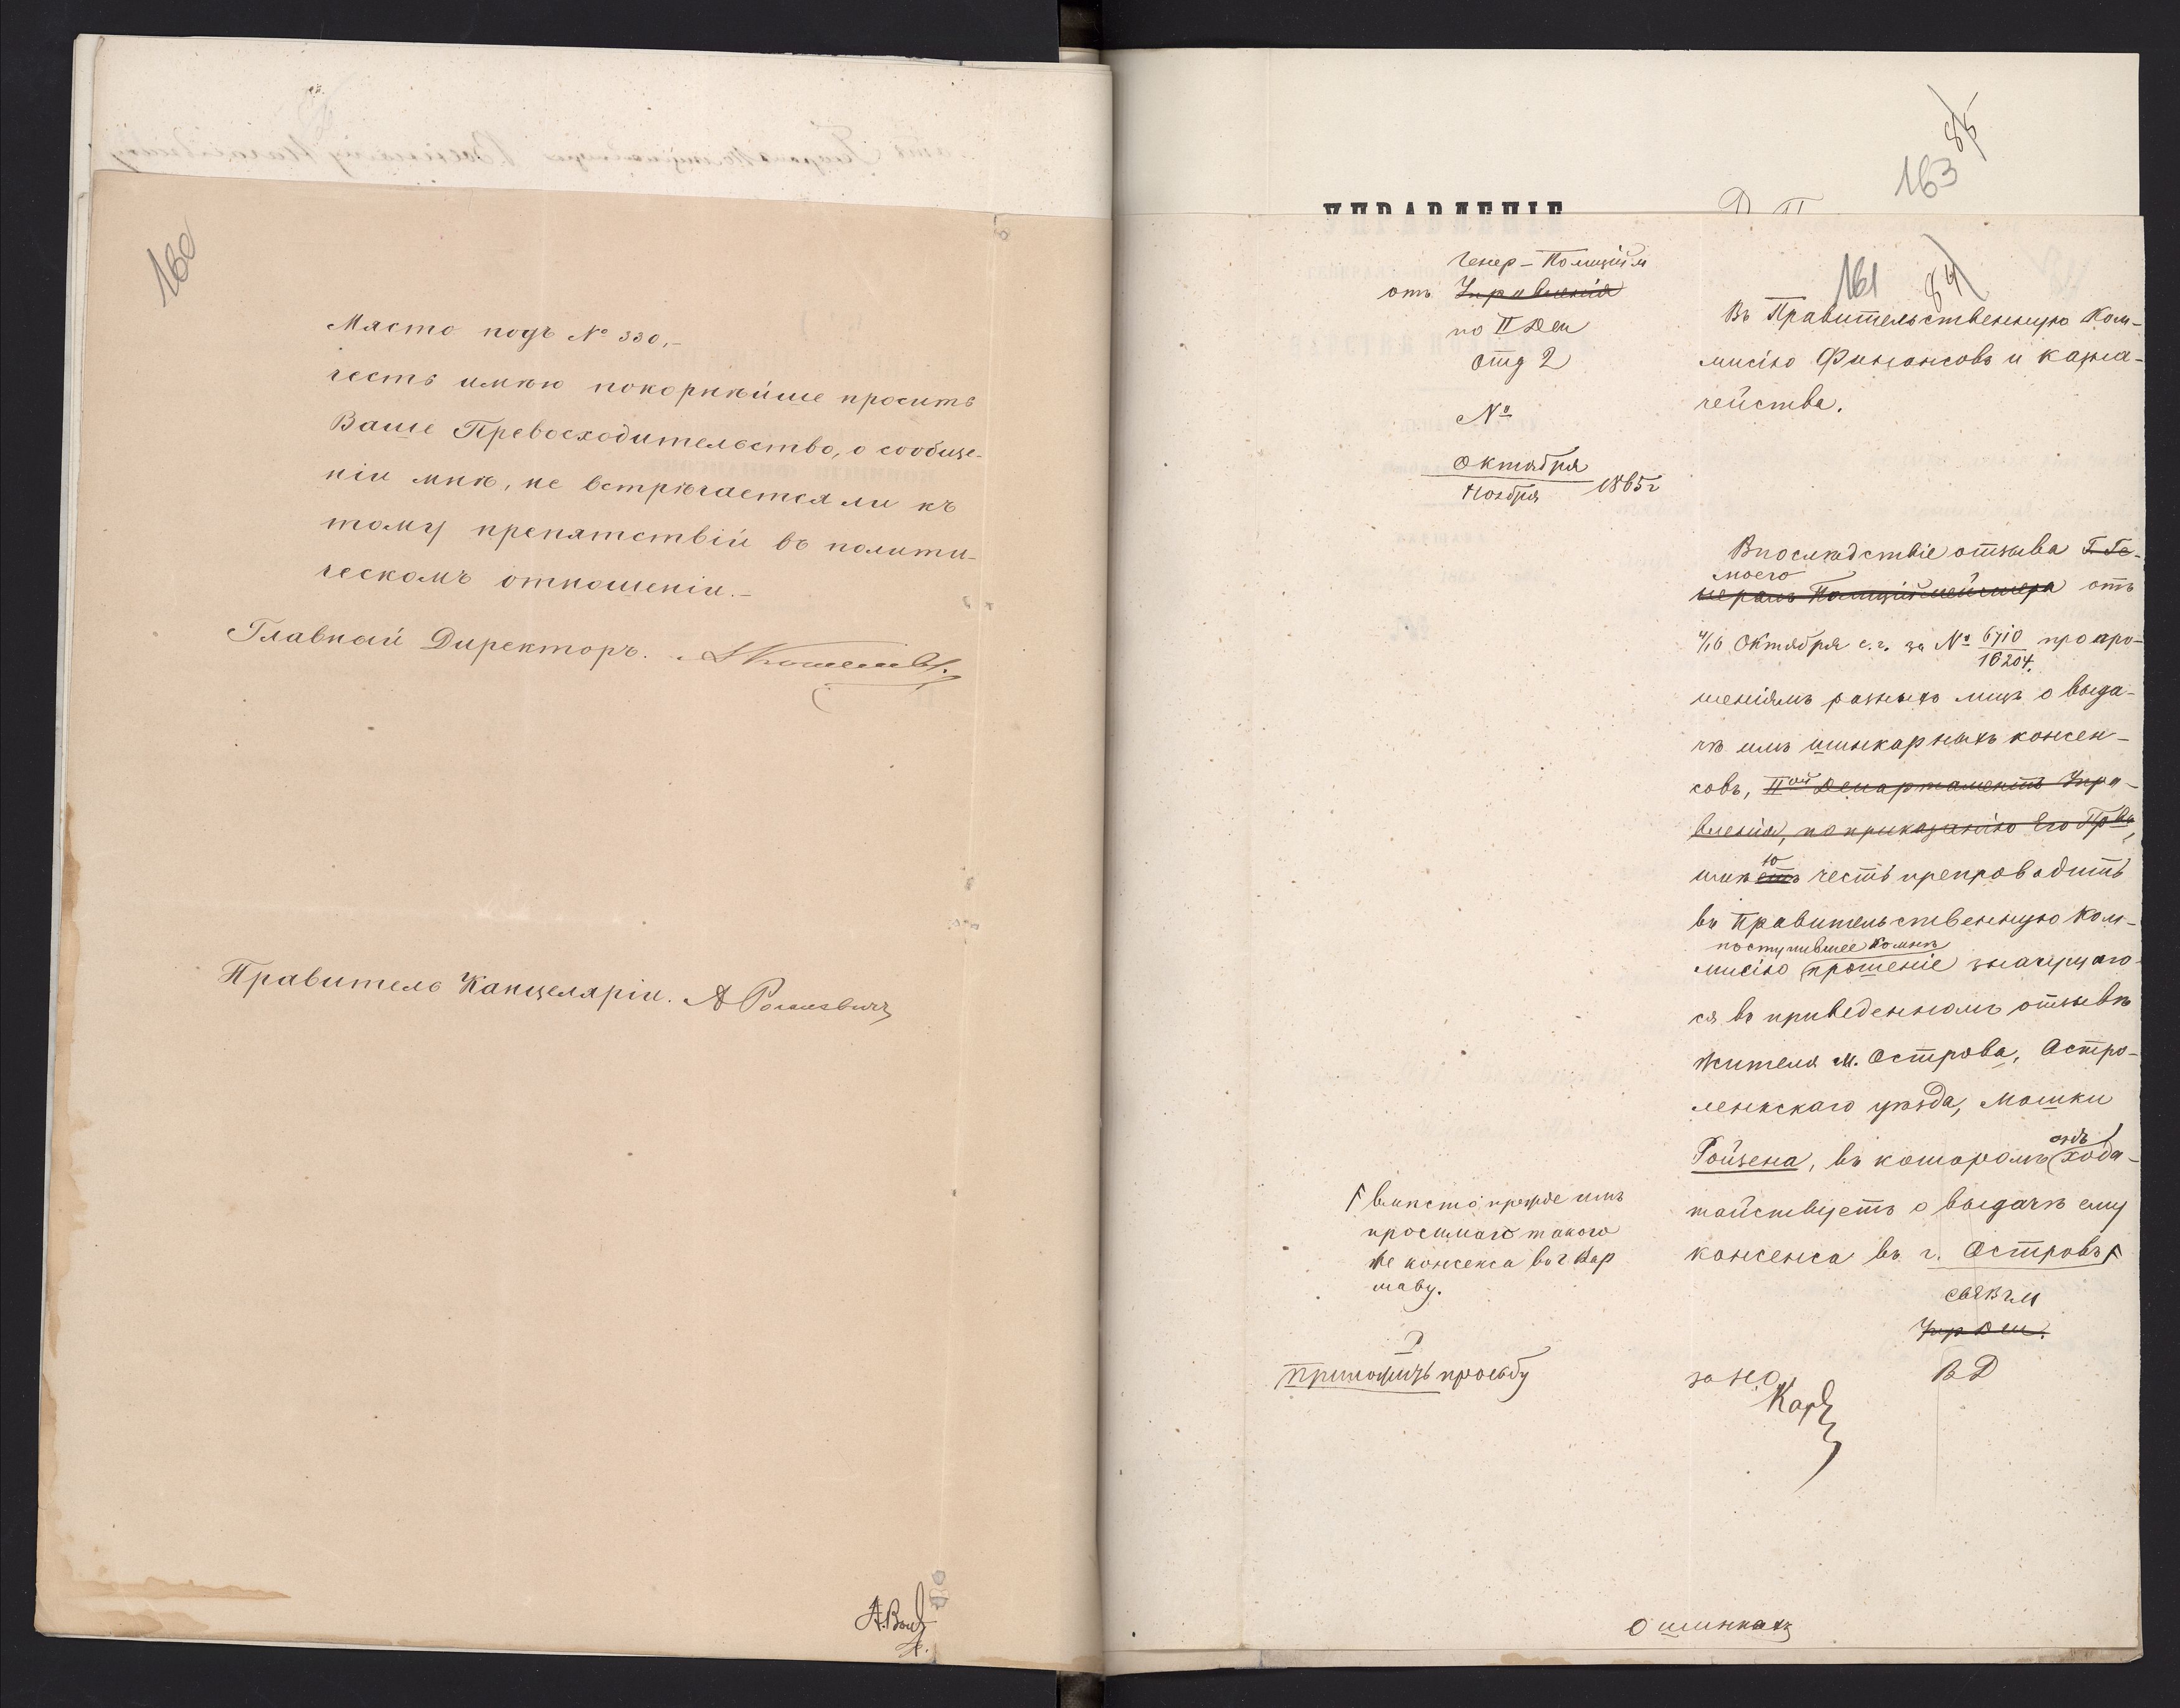 160
Място подъ № 330,-
честь имѣю покорнѣйше просить
Ваше Превосходительство, о сообще-
ніи мнѣ, не встрѣчается ли къ
тому препятствій въ полити-
ческомъ отношеніи.-
Главный Директоръ.
Правитель Канцеляріи.
УПРАВЛЕНІЕ
85
163
161
84
Генер-Полицій м
отъ Управленія
по II Деп
Отд 2
№
Октября
Ноября 1865 г
Въ Правительственную Ком-
мисію Финансовъ и казна-
чейства.
Впослѣдствіе отзыва Г. Ге-
моего
нералъ Полиціймейстера отъ
4/16 Октября с.г. за № 6710/16204. про про-
шеніямъ разныхъ лицъ о выда-
чѣ имъ шинкарныхъ консен-
совъ, IIой Департаментъ Упра-
вленія, по приказанію Его Пр-ва,
ю
имѣетъ честь препроводить
въ Правительственную Ком-
поступившее ко мнѣ
мисію прошеніе значущаго-
ся въ приведенномъ отзывѣ
жителя м. Острова, Остро-
ленкскаго уѣзда, Мошки
Ройзена, въ которомъ хода-
тайствуетъ о выдачѣ ему
консенса въ г. Островъ
вмѣсто прежде имъ
просимаго такого
же консенса въ г Вар
шаву.
свѣзм
Упр Деп.
Приложить просьбу
за НО
ВД
О шинкахъ